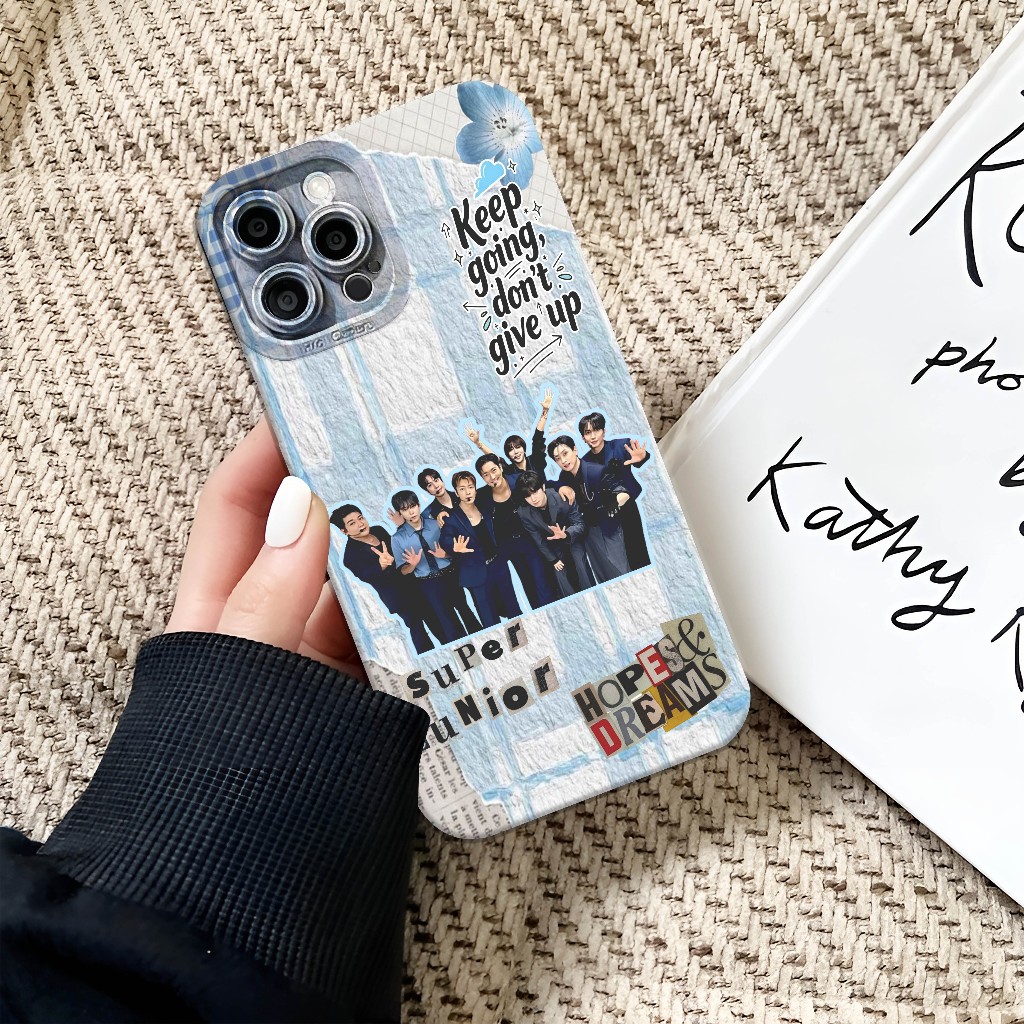 Keep
going,
don't
give up
SuPer
uNior
HOPES&
DREAMS
Ko
pho
b
Kathy
R